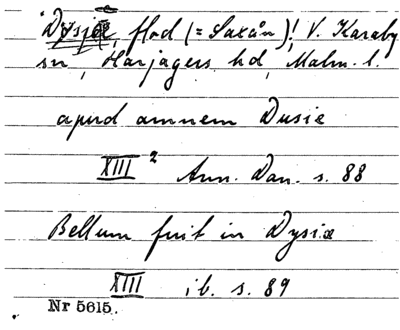 Dysjæ, flod (= Saxån)! V. Karaby
sn, Harjagers hd, Malm. l.
apud amnem Dusiæ
XIII 2 Ann. Dan. s. 88
Bellum fuit in Dysiæ
XIII ib. s. 89
Nr 5615.